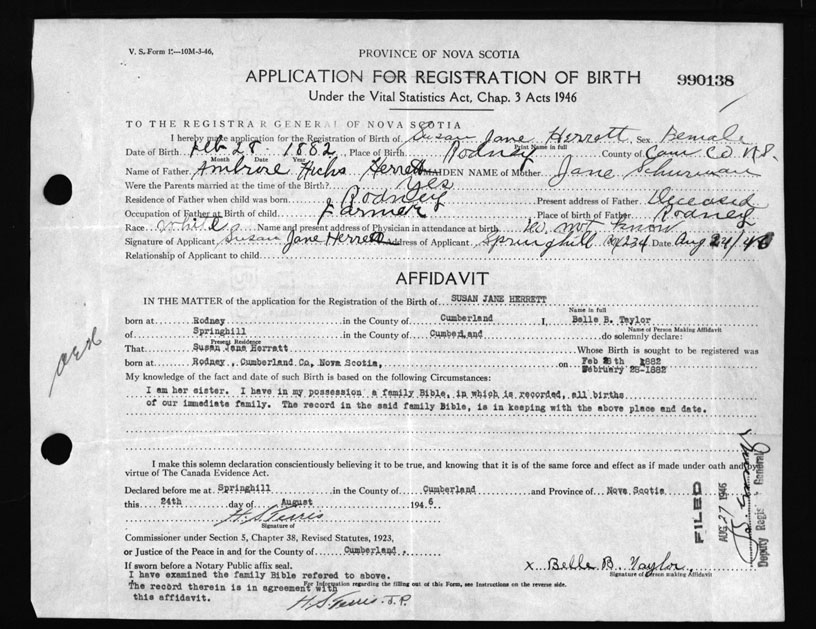 V. S. Form E—10M-3-46.
PROVINCE OF NOVA SCOTIA
APPLICATION FOR REGISTRATION OF BIRTH
990138
Under the Vital Statistics Act, Chap. 3 Acts 1946
TO THE REGISTRAR GENERAL OF NOVA SCOTIA
I hereby make application for the Registration of Birth of Susan Jane Herrett Sex Female
Print Name in full
Date of Birth Feb 28 - 1882, Place of Birth Rodney County of Cum Co. N.S.
Month Date Year
Name of Father Ambrose Hicks Herrett MAIDEN NAME of Mother Jane Schurman
Were the Parents married at the time of Birth? Yes
Residence of Father when child was born Rodney Present address of Father Deceased
Occupation of Father at Birth of child Farmer Place of birth of Father Rodney
Race White Name and present address of Physician in attendance at birth Do not know
Signature of Applicant Susan Jane Herrett Address of Applicant Springhill 234 Date Aug 24/46
Relationship of Applicant to child
AFFIDAVIT
IN THE MATTER of the application for the Registration of the Birth of SUSAN JANE HERRETT
Name in full
born at Rodney in the County of Cumberland I, Belle B. Taylor
Name of Person Making Affidavit
of Springhill in the County of Cumberland do solemnly declare:
Present Residence
That Susan Jane Herratt Whose Birth is sought to be registered was
born at Rodney, Cumberland Co, Nova Scotia, on Feb 28th 1882
February 28-1882
My knowledge of the fact and date of such Birth is based on the following Circumstances:
I am her sister. I have in my possession a family Bible, in which is recorded, all births
of our immediate family. The record in the said family Bible, is in keeping with the above place and date.
I make this solemn declaration conscientiously believing it to be true, and knowing that it is of the same force and effect as if made under oath and by
virtue of The Canada Evidence Act.
Declared before me at Springhill in the County of Cumberland and Province of Nova Scotia
this 24th day of August 1946
H S Terris
Signature of
Commissioner under Section 5, Chapter 38, Revised Statutes, 1923,
or Justice of the Peace in and for the County of Cumberland.
If sworn before a Notary Public affix seal.
x Belle B. Taylor
Signature of Person making Affidavit
I have examined the family Bible refered to above.
For Information regarding the filling out of this Form, see Instructions on the reverse side.
The record therein is in agreement with
this affidavit.
H S Terris J.P.
FILED
AUG 27 1946
Deputy Registrar General